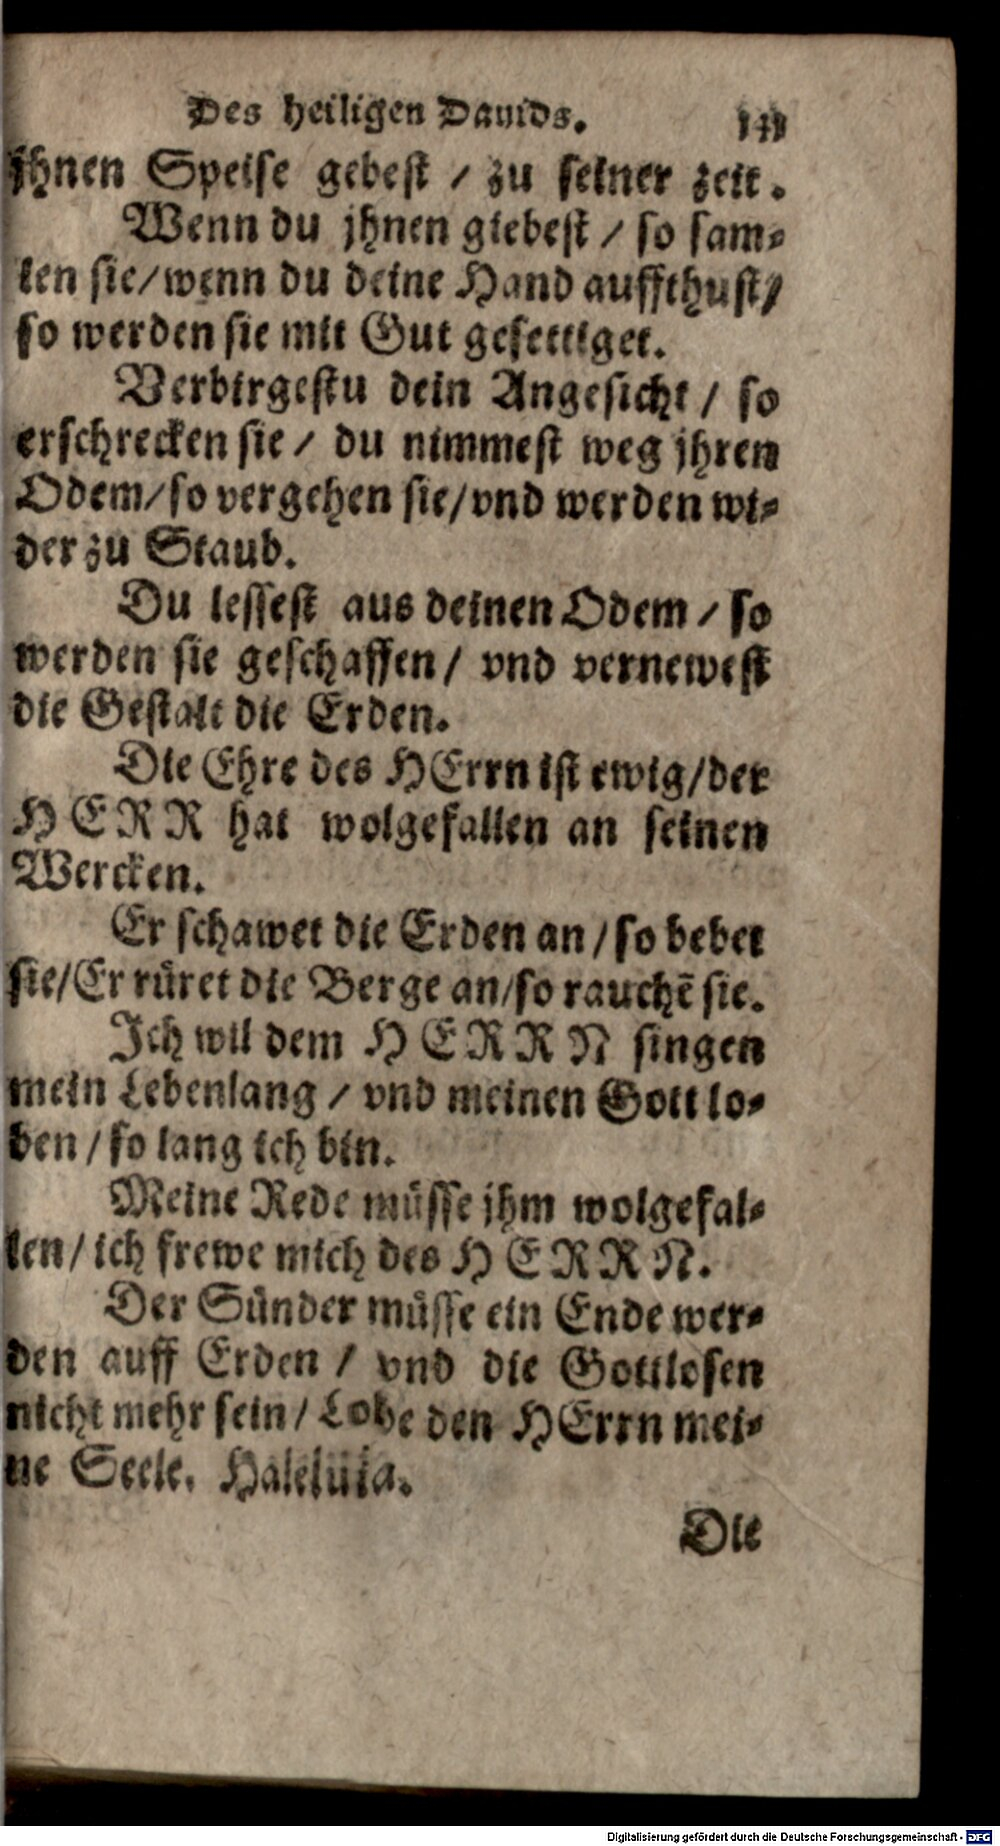 Des heiligen Dauids. 141
jhnen Speise gebest / zu seiner zeit.
Wenn du jhnen giebest / so sam⸗
len sie/wenn du deine Hand auffthust/
so werden sie mit Gut gesettiget.
Verbirgestu dein Angesicht / so
erschrecken sie / du nimmest weg jhren
Odem/so vergehen sie/vnd werden wi⸗
der zu Staub.
Du lessest aus deinen Odem / so
werden sie geschaffen / vnd vernewest
die Gestalt die Erden.
Die Ehre des HErrn ist ewig/der
HERR hat wolgefallen an seinen
Wercken.
Er schawet die Erden an / so bebet
sie/Er rüret die Berge an/so rauchẽ sie.
Ich wil dem HERRN singen
mein Lebenlang / vnd meinen Gott lo⸗
ben / so lang ich bin.
Meine Rede müsse jhm wolgefal⸗
len/ ich frewe mich des HERRN.
Der Sünder müsse ein Ende wer⸗
den auff Erden / vnd die Gottlosen
nicht mehr sein / Lobe den HErrn mei⸗
ne Seele. Haleluia.
Die
Digitalisierung gefördert durch die Deutsche Forschungsgemeinschaft - DFG